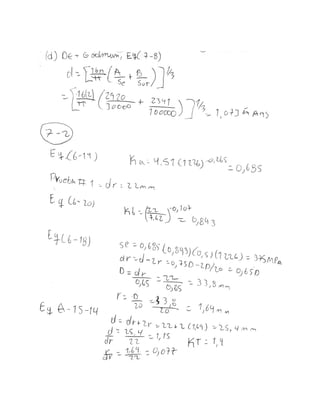 (d) DE - Goodman, Eq(7-8)
d = [16n/π (A/Se + B/Sut)]^1/3
= [16(2)/π (2920/30000 + 2391/100000)]^1/3 = 1,073 in Ans
7-2
Eq.(6-19) Ka = 4.51(1226)^-0,265 = 0,685
Prueba # 1 = dr = 22mm
Eq (6-20) Kb = (22/7,62)^-0,107 = 0,893
Eq(6-18) Se = 0,685(0,893)(0,5)(1226) = 375MPa
dr = d-2r = 0,75D - 2D/20 = 0,65D
D = dr/0,65 = 22/0,65 = 33,8mm
r = D/20 = 33,8/20 = 1,69mm
Eq A-15-14 d = dr + 2r = 22 + 2(1,69) = 25,4mm
d/dr = 25,4/22 = 1,15 KT = 1,9
r/dr = 1,69/22 = 0,077